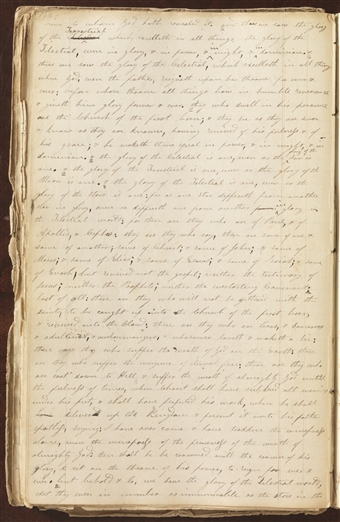 to whom God hath revealed it; & thus we saw the glory
Terrestrial
of the which excelleth in all things the glory of the
Telestial, even in glory, & in power, & in might, & in dominion; &
thus we saw the glory of the Celestial, which excelleth in all things
where God, even the father, reigneth upon his throne for ever &
ever; before whose throne all things bow in humble reverence
& giveth him glory forever & ever; they who dwell in his presence
are the Church of the first born; & they see as they are seen
& know as they are known, having received of his fulness & of
his grace; & he maketh them equal in power, & in might, & in
dominion; & the glory of the Celestial is one, even as the glory of the
Sun is one; & the glory of the Terrestrial is one, even as the glory of the
Moon is one; & the glory of the Telestial is one, even as the
glory of the Stars is one; for as one star differeth from another
star in glory, even so differeth one from another in glory in
the Telestial world; for these are they who are of Paul, & of
Apollos, & Cephas; they are they who say, there are some of one &
some of another; some of Christ; & some of John; & some of
Moses; & some of Elias; & some of Esaias; & some of Isaiah; & some
of Enoch, but received not the gospel; neither the testimony of
Jesus; neither the Prophets; neither the everlasting Covenant;
last of all; these are they who will not be gathered with the
saints, to be caught up into the Church of the first born,
& received into the Cloud; these are they who are liars, & sorcerers
& adulterers, & whoremongers, & whosoever loveth & maketh a lie;
these are they who suffer the wrath of God on the earth; these
are they who suffer the vengeance of eternal fire; these are they who
are cast down to Hell & suffer the wrath of almighty God until
the fulness of times, when Christ shall have subdued all enemies
under his feet, & shall have perfected his work, when he shall
deliver up the Kingdom & present it unto his father
spotless, saying; I have overcome & have trodden the winepress
alone, even the winepress of the fierceness of the wrath of
almighty God; then shall he be crowned with the crown of his
glory, to sit on the throne of his power, to reign for ever &
ever; but behold & lo, we saw the glory of the Telestial world,
that they were in number as innumerable as the stars in the